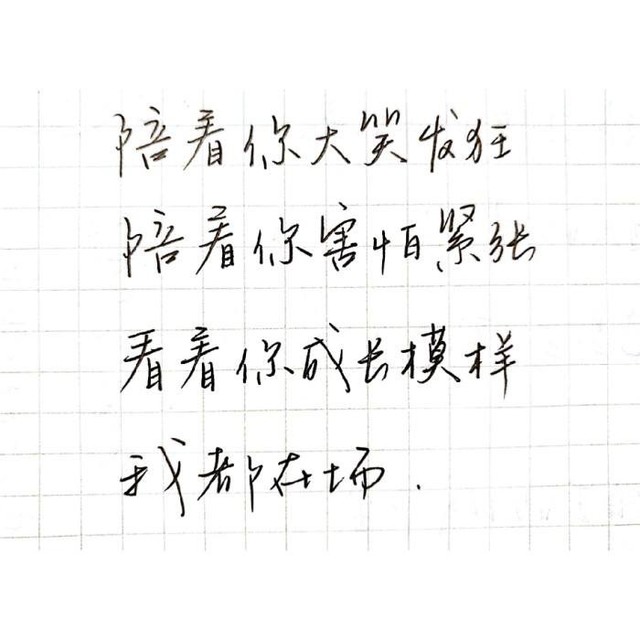 陪着你大笑发狂
陪着你害怕紧张
看着你成长模样
我都在场.